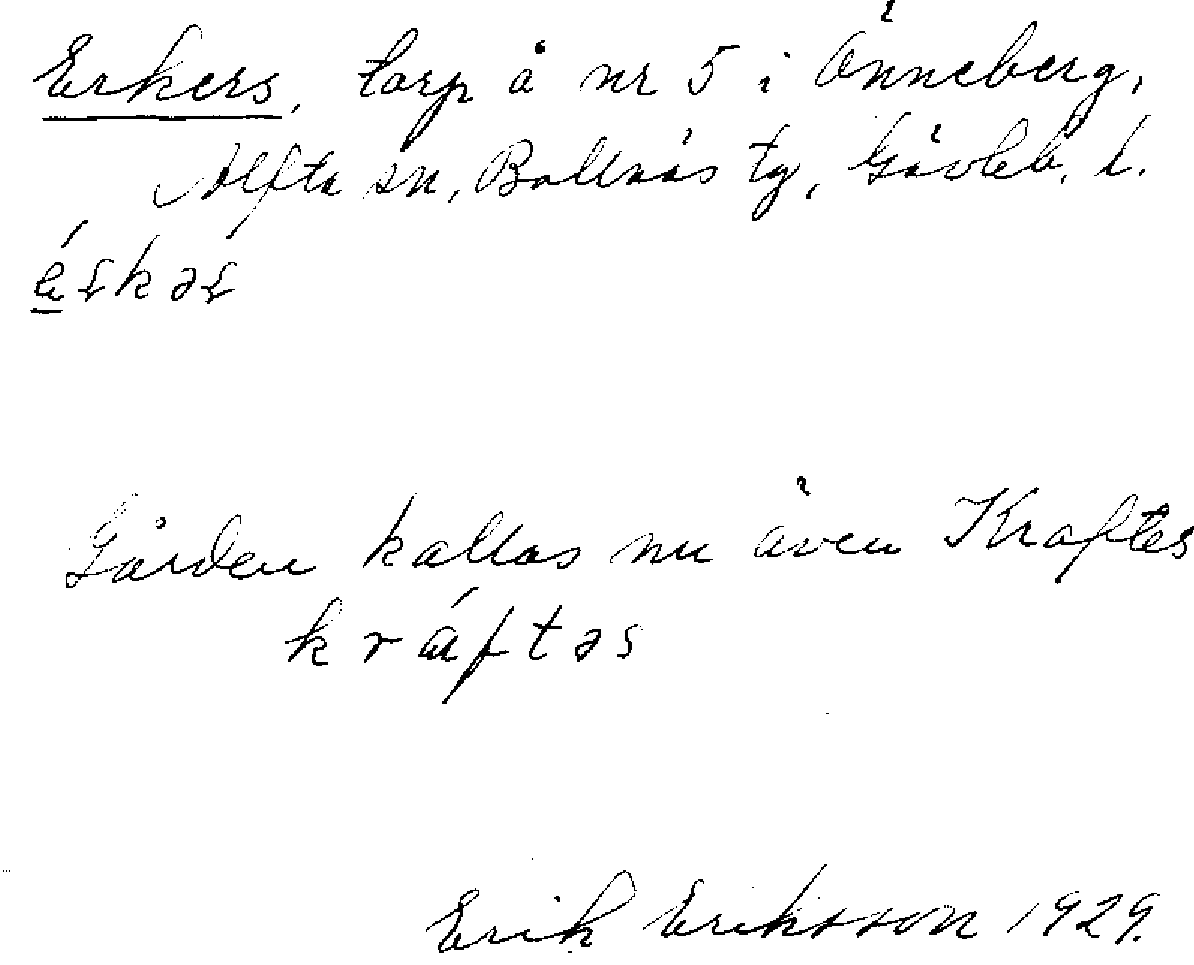 Erkers, torp å nr 5 i Änneberg,
Alfta sn, Bollnäs tg, Gävleb. l.
Gården kallas nu även Kraftes
kráftəs
Erik Eriksson 1929.